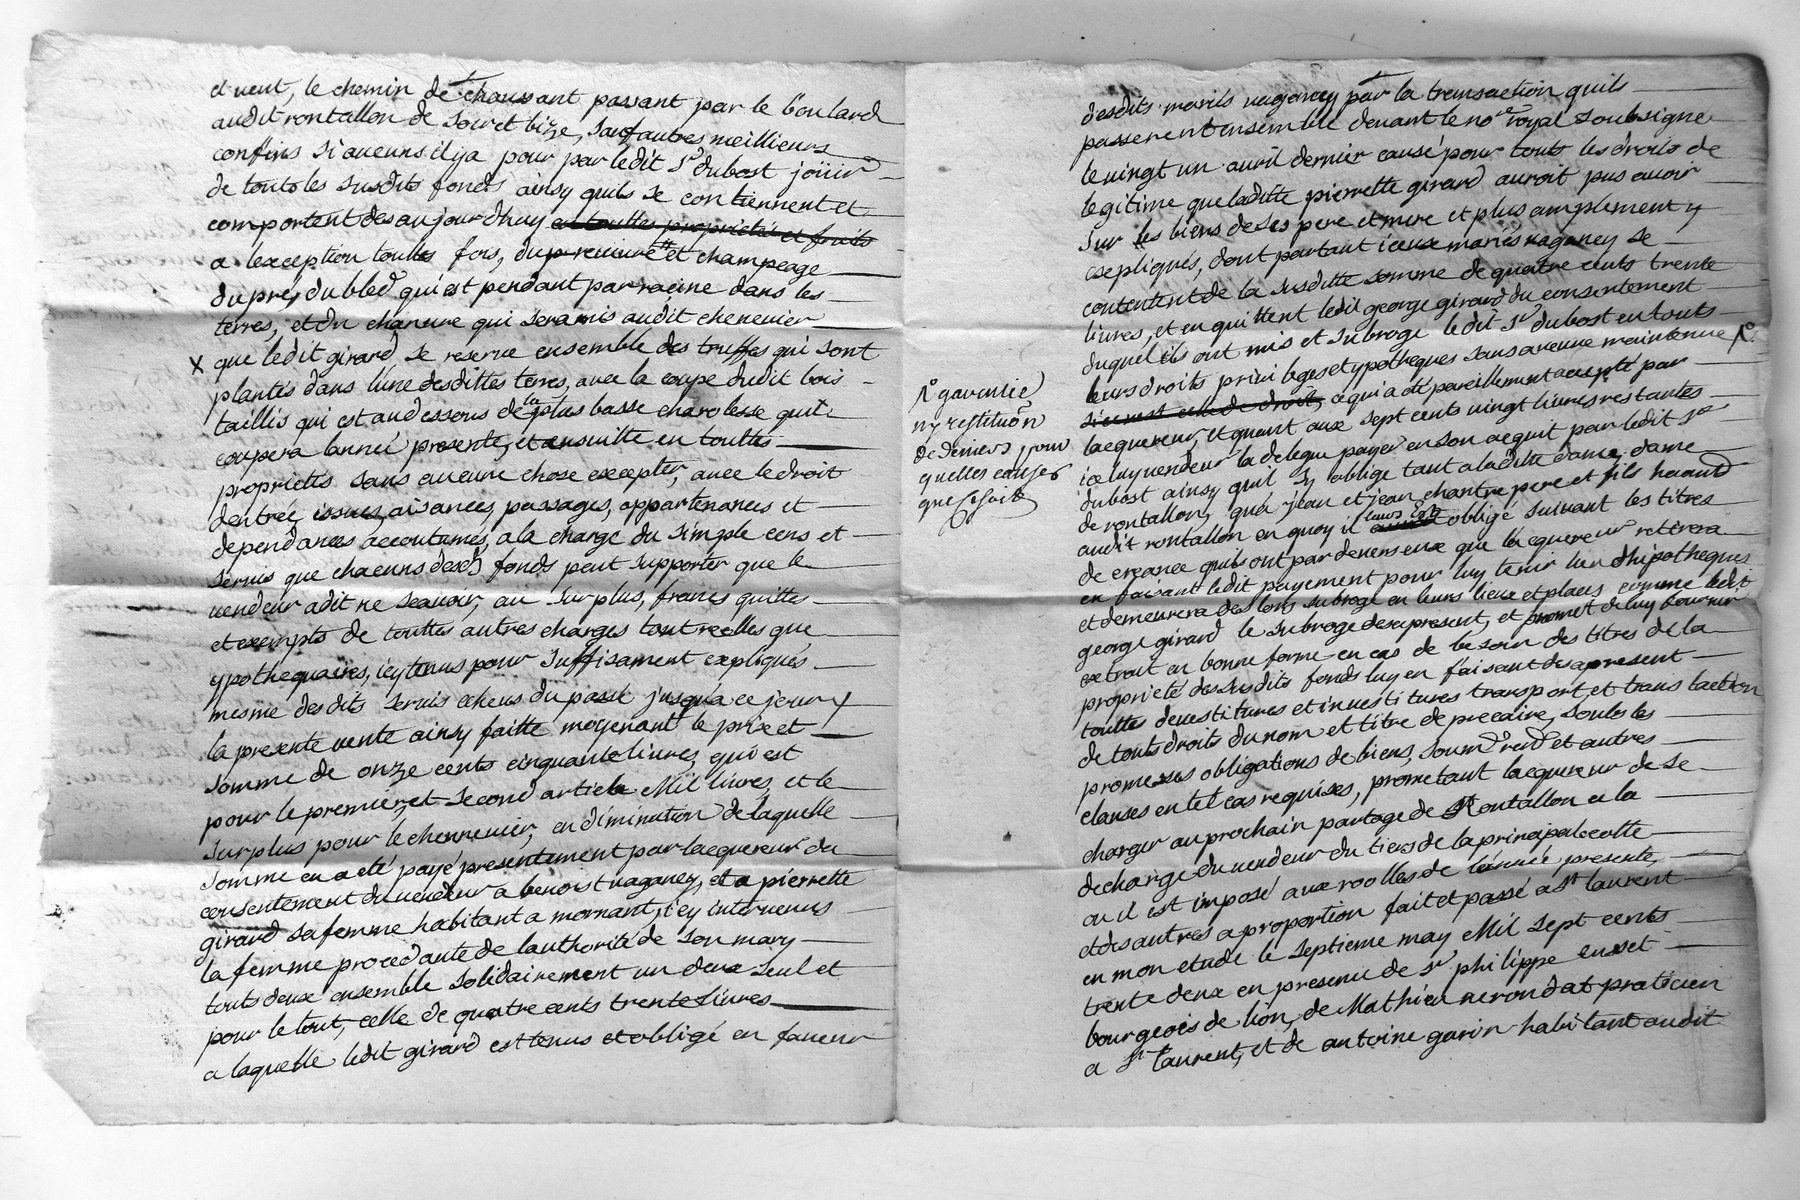 et vent, le chemin de chaussant passant par le boulard
audit rontallon de soir et bize, sauf autres meillieurs
confins si aucuns il ya pour par ledit Sr dubost joüir
de touts les susdits fonds ainsy quils se contiennent et
comportent des aujourdhuy et touttes proprietés et fruits
a lexception touttes fois, du et champeage
du prés, du bled qui est pendant par racine dans les
terres, et du chanvre qui sera mis audit chenevier
X que ledit girard se reserve ensemble des truffes qui sont
plantés dans lune desdittes terres, avec la coupe dudit bois
taillis qui est au dessous de la plus basse charolesse quil
coupera lannée presente, et ensuitte en touttes
proprietés sans aucune chose excepter, avec le droit
dentrée, issues, aisances, passages, appartenances et
dependances accoutumés, a la charge du simple cens et
servis que chacuns desds fonds peut supporter que le
vendeur a dit ne scavoir, au surplus, francs quittes
et exempts de touttes autres charges tout reelles que
ypothequaires, icy tenus pour suffisament expliqués
mesme desdits servis echeus du passé jusqua ce jour
la presente vente ainsy faitte moyenant le prix et
somme de onze cents cinquante livres, qui est
pour le premier, et second article Mil livres, et le
surplus pour le chennevier, en diminution de laquelle
somme en a eté payé presentement par lacquereur du
consentement du vendeur a benoist vaganey, et a pierrette
girard sa femme habitant a mornant, icy intervenus
la femme procedante de lauthorité de son mary
touts deux ensemble solidairement un deux seul et
pour le tout, celle de quatre cents trente livres
a laquelle ledit girard est tenus et obligé en faveur
desdits mariés vaganey par la transaction quils
passerent ensemble devant le nore royal soubsigné
le vingt un avril dernier causé pour touts les droits de
legitime que laditte pierrette girard auroit pus avoir
sur les biens de ses pere et mere et plus amplement y
expliqués, dont partant iceux mariés vaganey se
contentent de la susditte somme de quatre cents trente
livres, et en quittent ledit george girard du consentement
duquel ils ont mis et subrogé ledit Sr dubost en touts
leurs droits privileges et ypotheques sans aucune maintenue
si ce nest celle de droit, ce qui a eté pareillement accepté par
lacquereur, et quant aux sept cents vingt livres restantes
iceluy vendeur la delegue payer en son acquit par ledit Sr
dubost ainsy quil sy oblige tant a laditte dame, dame
de rontallon, qua jean et jean chantre pere et fils
audit rontallon en quoy il leurs est obligé suivant les titres
de creance quils ont par devers eux que lacquereur retirera
en faisant ledit payement pour luy tenir lieu dhipotheques
et demeurera des lors subrogé en leurs lieux et places comme ledit
george girard le subroge des a present, et promet de luy fournir
extrait en bonne forme en cas de besoin des titres de la
proprieté des susdits fonds luy en faisant des a present
touttes devestitures et investitures transport, et translaction
de touts droits du nom et titre de precaire, soubs les
promesses obligations de biens, soumon renon et autres
clauses en tel cas requises, prometant lacquereur de se
charger au prochain partage de Rontallon a la
decharge du vendeur du tiers de la principale cotte
ou il est imposé aux roolles de lannée presente,
et des autres a proportion fait et passé a St laurent
en mon etude le septieme may Mil sept cents
trente deux en presence de Sr philippe
bourgeois de lion, de Mathieu nerondat praticien
a St laurent, et de antoine garin habitant audit
garentie
ny restituon
de deniers pour
quelles causes
que ce soit